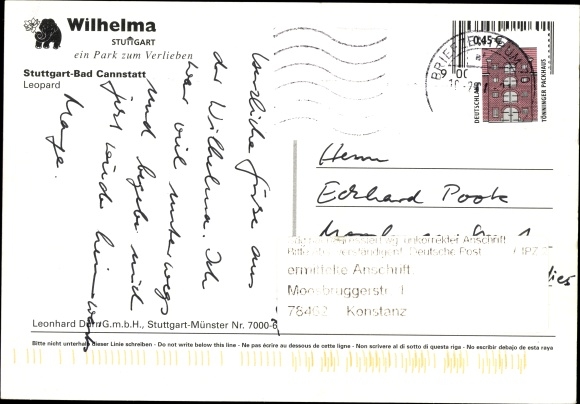 Wilhelma
STUTTGART
ein Park zum Verlieben
Stuttgart-Bad Cannstatt
Leopard
Herzliche Grüße aus
der Wilhelma. Ich
war viel unterwegs
und begebe mich
jetzt wieder heimwärts
0,45 €
DEUTSCHLAND
TÖNNINGER PACKHAUS
BRIEFZENTRUM
Herrn
Eckhard Pook
Deutsche Post
ermittelte Anschrift
Moosbruggerstr 1
78462 Konstanz
Leonhard Dürr G.m.b.H., Stuttgart-Münster Nr. 7000-6
Bitte nicht unterhalb dieser Linie schreiben - Do not write below this line - Ne pas écrire au dessous de cette ligne - Non scrivere al di sotto di questa riga - No escribir debajo de esta raya